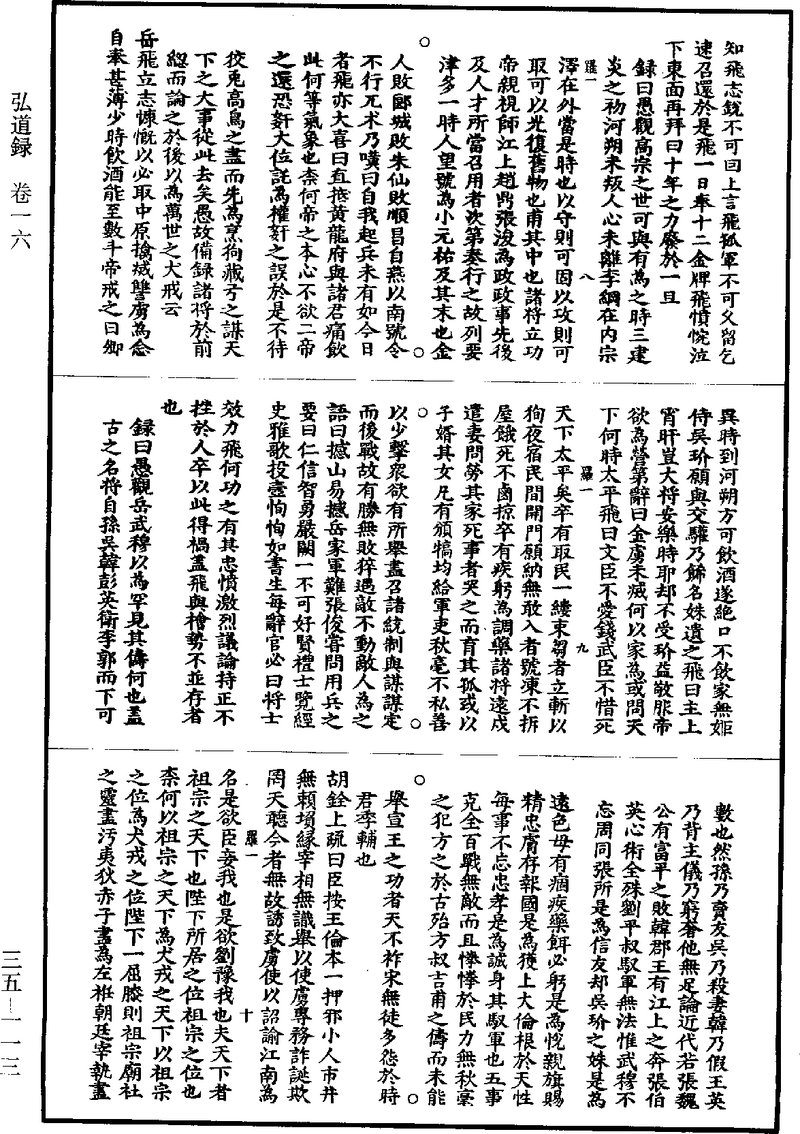 弘道録　卷一六
三五—一一三
知飛志銳不可回上言飛孤軍不可久留乞
速召還於是飛一日奉十二金牌飛憤惋泣
下東面再拜曰十年之力廢於一旦
録曰愚觀高宗之世可與有為之時三建
炎之初河朔未叛人心未離李綱在内宗
羅一
八
澤在外當是時也以守則可固以攻則可
取可以光復舊物也甫其中也諸將立功
帝親視師江上趙鼎張浚為政政事先後
及人才所當召用者次第奏行之故列要
津多一時人望號為小元祐及其末也金
○
人敗郾城敗朱仙敗順昌自燕以南號令
不行兀术乃嘆曰自我起兵未有如今日
者飛亦大喜曰直抵黄龍府與諸君痛飲
此何等氣象也柰何帝之本心不欲二帝
之還恐奸大位託為權奸之誤於是不待
狡兎高鳥之盡而先為烹狗藏弓之謀天
下之大事從此去矣愚故備録諸將於前
總而論之於後以為萬世之大戒云
岳飛立志慷慨以必取中原擒滅讐虜為念
自奉甚薄少時飲酒能至數斗帝戒之曰卿
異時到河朔方可飲酒遂絶口不飲家無姬
侍吳玠願與交驩乃餙名姝遺之飛曰主上
宵旰豈大将安樂時耶却不受玠益敬服帝
欲為營第辭曰金虜未滅何以家為或問天
下何時太平飛曰文臣不愛錢武臣不惜死
羅一
九
天下太平矣卒有取民一縷束芻者立斬以
狥夜宿民間開門願納無敢入者號凍不拆
屋餓死不鹵掠卒有疾躬為調藥諸将遠戍
遣妻問勞其家死事者哭之而育其孤或以
子婿其女凡有頒犒均給軍吏秋毫不私善
○
以少擊衆欲有所舉盡召諸統制與謀謀定
而後戰故有勝無敗猝遇敵不動敵人為之
語曰撼山易撼岳家軍難張俊嘗問用兵之
要曰仁信智勇嚴闕一不可好賢禮士覽經
史雅歌投壺恂恂如書生每辭官必曰将士
效力飛何功之有其忠憤激烈議論持正不
挫於人卒以此得禍蓋飛與檜勢不並存者
也
録曰愚觀岳武穆以為罕見其儔何也蓋
古之名将自孫吳韓彭英衛李郭而下可
數也然孫乃賣友吳乃殺妻韓乃假王英
乃背主儀乃窮奢他無足論近代若張魏
公有富平之敗韓郡王有江上之奔張伯
英心術全殊劉平叔馭軍無法惟武穆不
忘周同張所是為信友却吳玠之姝是為
遠色母有痼疾藥餌必躬是為悅親旗賜
精忠膚存報國是為獲上大倫根於天性
每事不忘忠孝是為誠身其馭軍也五事
克全百戰無敵而且惓惓於民力無秋毫
之犯方之於古殆方叔吉甫之儔而未能
○
舉宣王之功者天不祚宋無徒多怨於時
君季輔也
胡銓上疏曰臣按王倫本一押邪小人市井
無賴頃緣宰相無識舉以使虜專務詐誕欺
罔天聽今者無故誘致虜使以詔諭江南為
羅一
十
名是欲臣妾我也是欲劉豫我也夫天下者
祖宗之天下也陛下所居之位祖宗之位也
柰何以祖宗之天下為犬戎之天下以祖宗
之位為犬戎之位陛下一屈膝則祖宗廟社
之靈盡汚夷狄赤子盡為左袵朝廷宰執盡